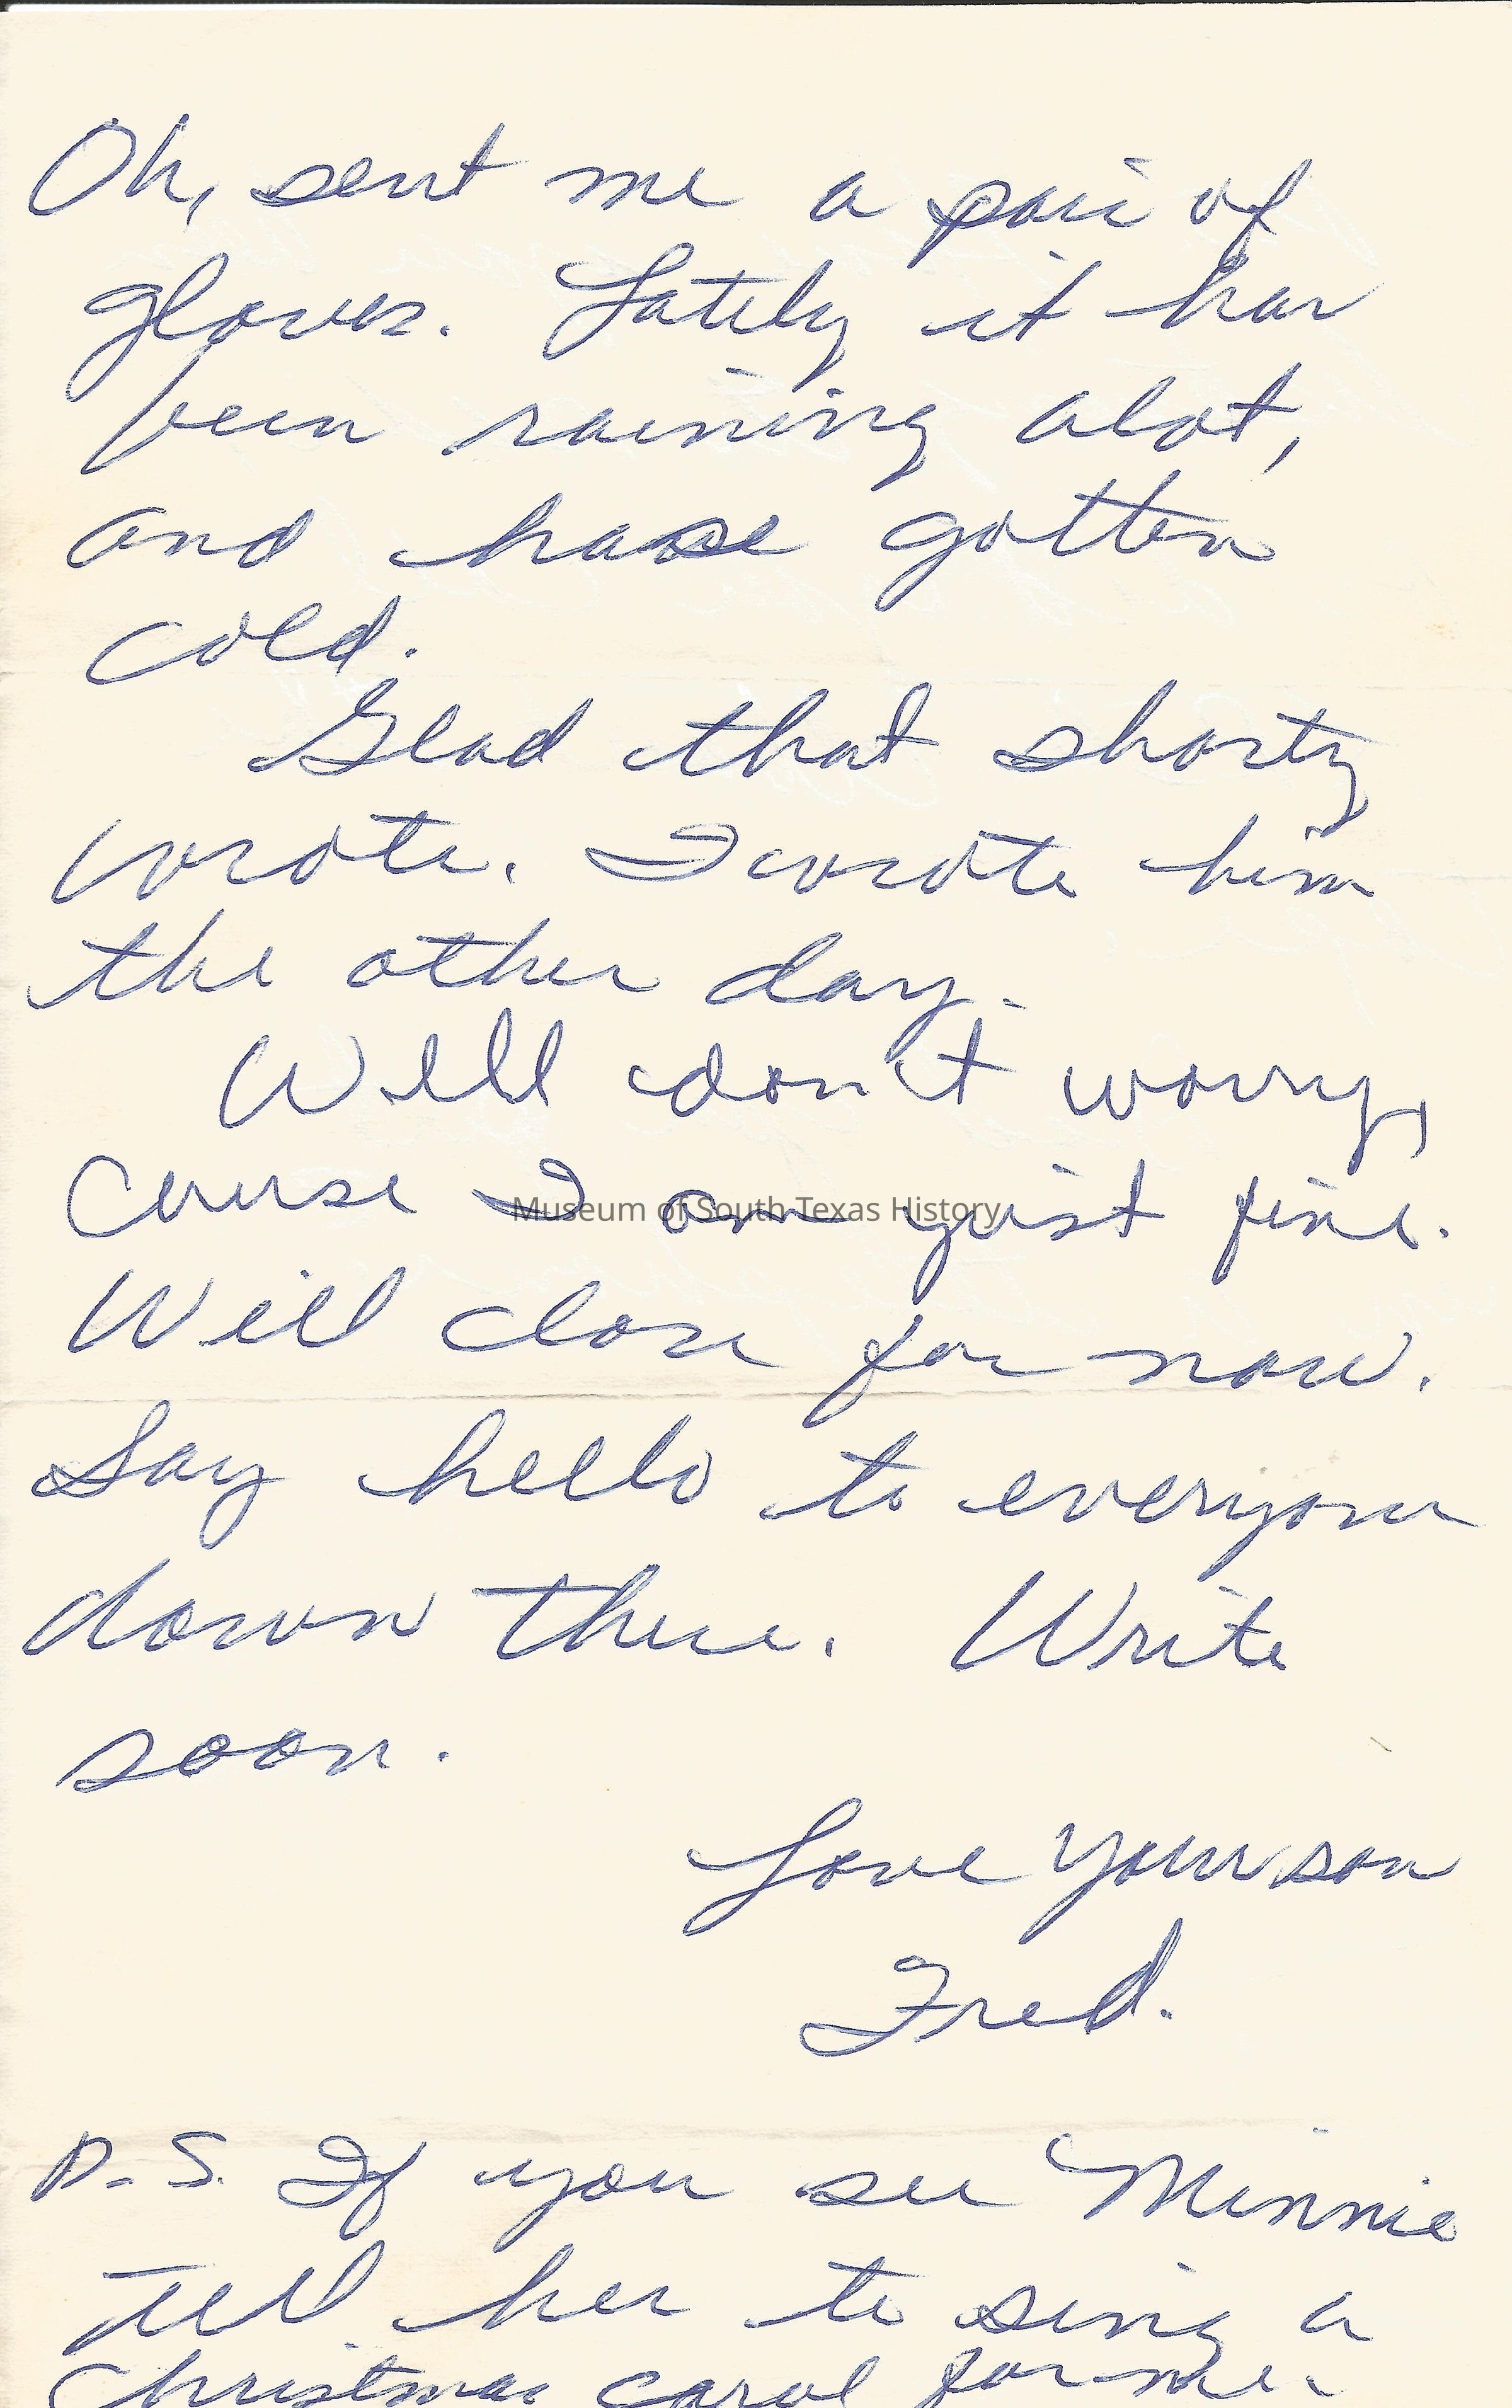 Oh, sent me a pair of
gloves. Lately it has
been raining alot,
and hase gotten
cold.
Glad that shorty
wrote. I wrote him
the other day.
Well don't worry,
course I am just fine.
Will close for now.
Say hello to everyone
down there. Write
soon.
Love your son
Fred.
P.S. If you see Minnie
tell her to sing a
Christmas carol for me.
Museum of South Texas History